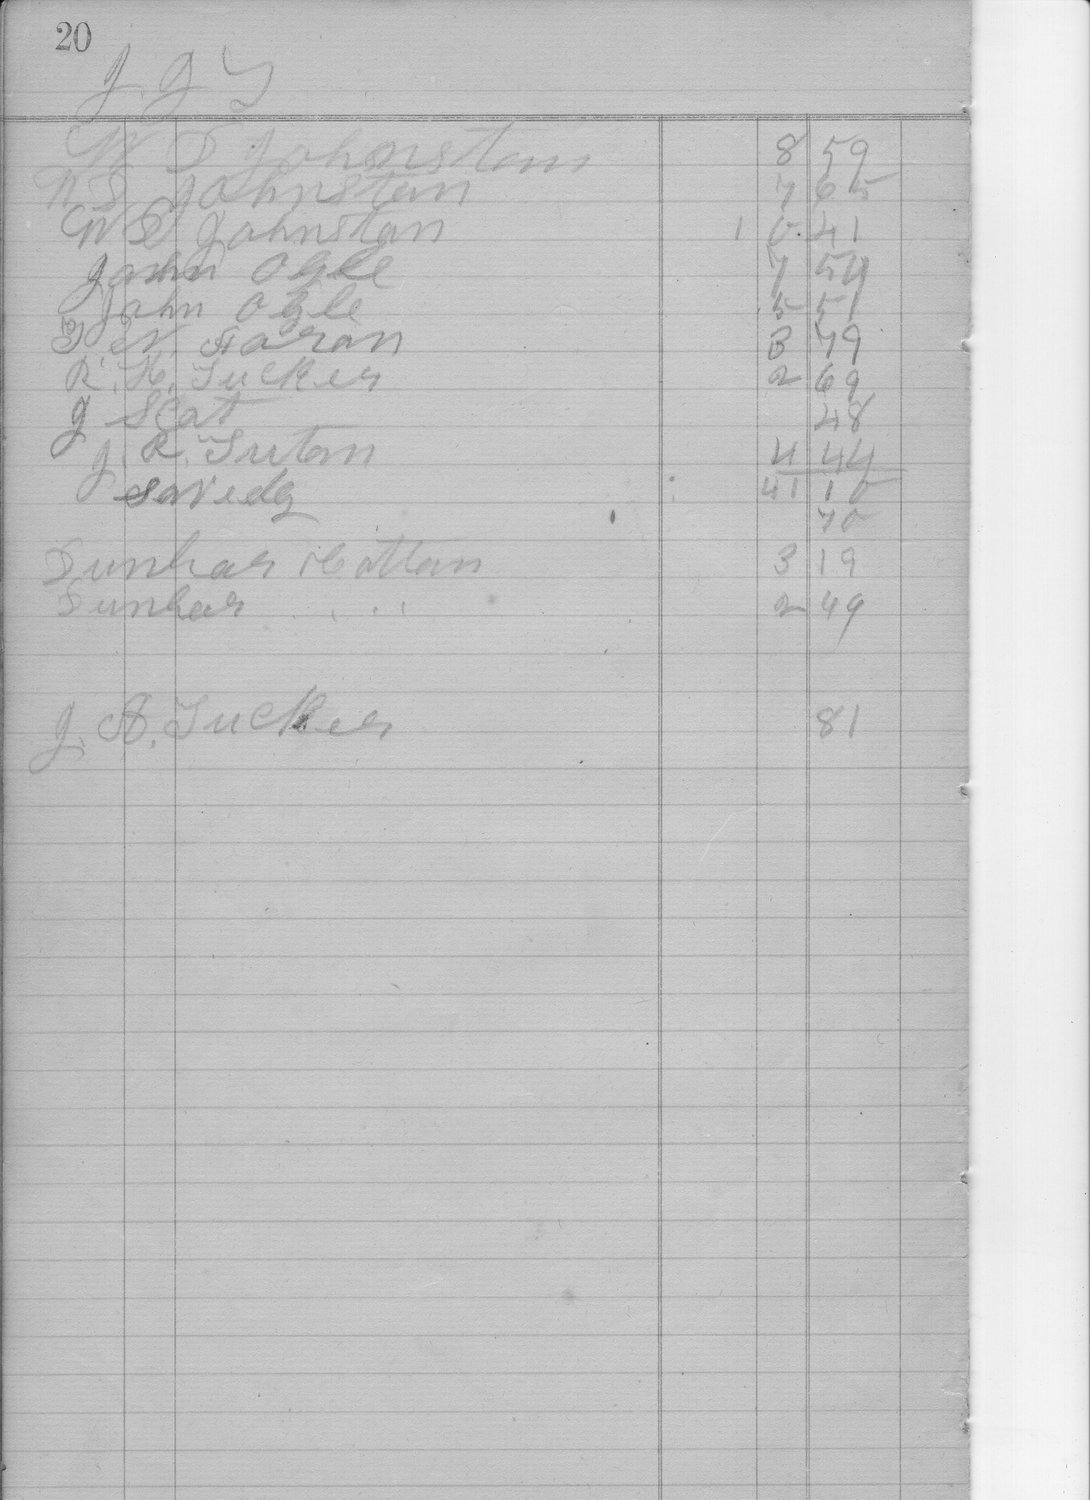 20
J. J. Y
W S Johnston 8 59
W S Johnston 7 65
W S Johnston 10.41
John Ogle 7 54
John Ogle 5 51
N. Aaron 3 79
R. H. Tucker 2 69
J Scot 48
J. R. Tuton 4 44
41 10
70
Dunbar Cottan 3 19
Dunbar " " 2 49
J. A. Tucker 81